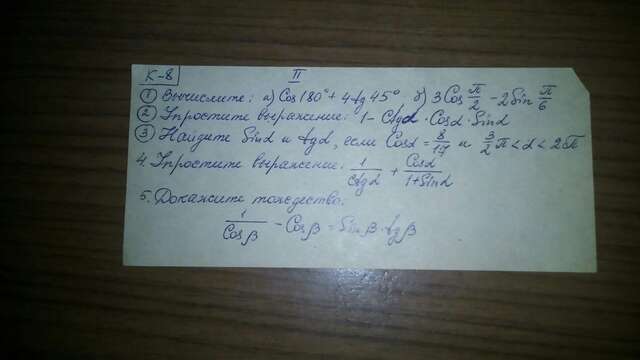 К-8 II
① Вычислите: а) Cos 180° + 4 tg 45° б) 3 Cos π/2 - 2 Sin π/6
② Упростите выражение: 1 - Ctgα · Cosα · Sinα
③ Найдите Sinα и tgα, если Cosα = 8/17 и 3/2 π < α < 2π
4. Упростите выражение: 1/Ctgα + Cosα/1+Sinα
5. Докажите тождество:
1/Cosβ - Cosβ = Sinβ · tgβ